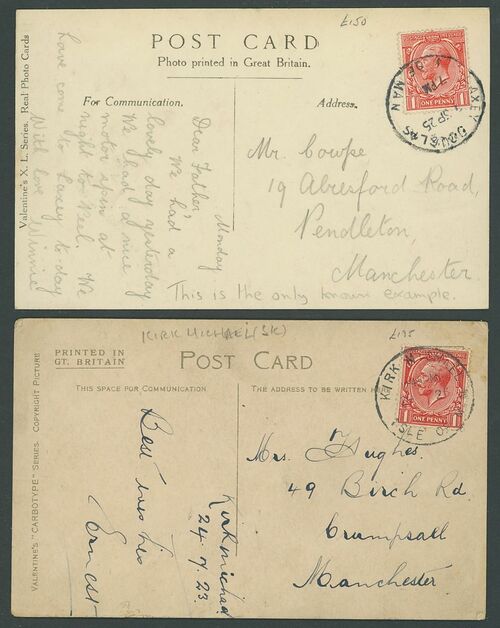 £150
POST CARD
Photo printed in Great Britain.
Valentine's X. L. Series. Real Photo Cards
For Communication.
Address.
ONE PENNY
LAXEY DOUGLAS
7 PM
SP 25
OF MAN
Monday
Dear Father,
We had a
lovely day yesterday
We had a nice
motor spin at
night to Peel. We
have come to Laxey to-day
With love
Winnie
Mr. Cowpe
19 Abresford Road,
Pendleton,
Manchester
This is the only known example.
KIRK MICHAEL (SK)
£135
PRINTED IN
GT. BRITAIN
POST CARD
VALENTINE'S "CARBOTYPE" SERIES. COPYRIGHT PICTURE
THIS SPACE FOR COMMUNICATION
THE ADDRESS TO BE WRITTEN
ONE PENNY
KIRK M
ISLE O
Kirkmichael
24.7.23
Best loves
Ernest
Mrs. Hughes.
49 Birch Rd
Crumpsall
Manchester